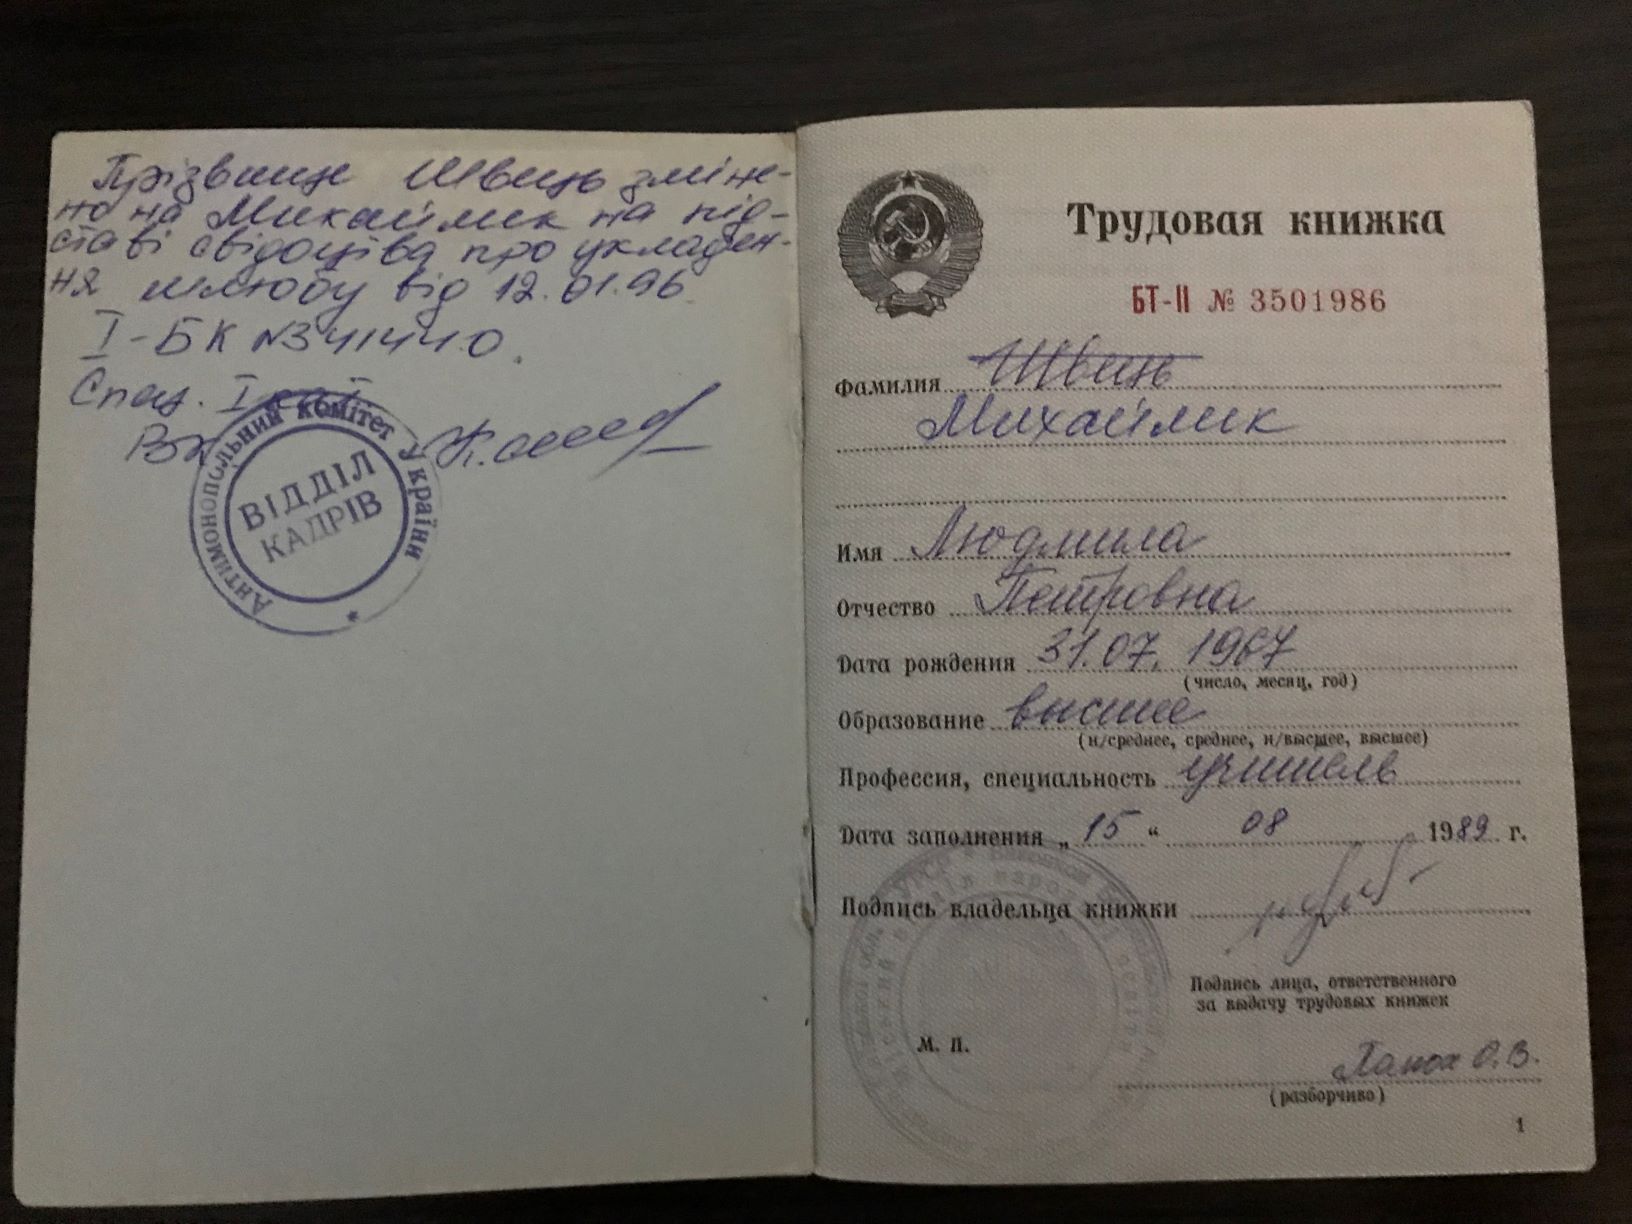 Прізвище Швець зміне-
но на Михайлик на під-
ставі свідоцтва про укладен-
ня шлюбу від 12.01.96
I-БК №341440.
Спец. I кат
ВК
Антимонопольний комітет України
ВІДДІЛ
КАДРІВ
Трудовая книжка
БТ-II № 3501986
Фамилия Швець
Михайлик
Имя Людмила
Отчество Петровна
Дата рождения 31.07.1967
(число, месяц, год)
Образование высшее
(н/среднее, среднее, н/высшее, высшее)
Профессия, специальность учитель
Дата заполнения „15“ 08 1989 г.
Подпись владельца книжки
Подпись лица, ответственного
за выдачу трудовых книжек
М. П.
О.В.
(разборчиво)
1